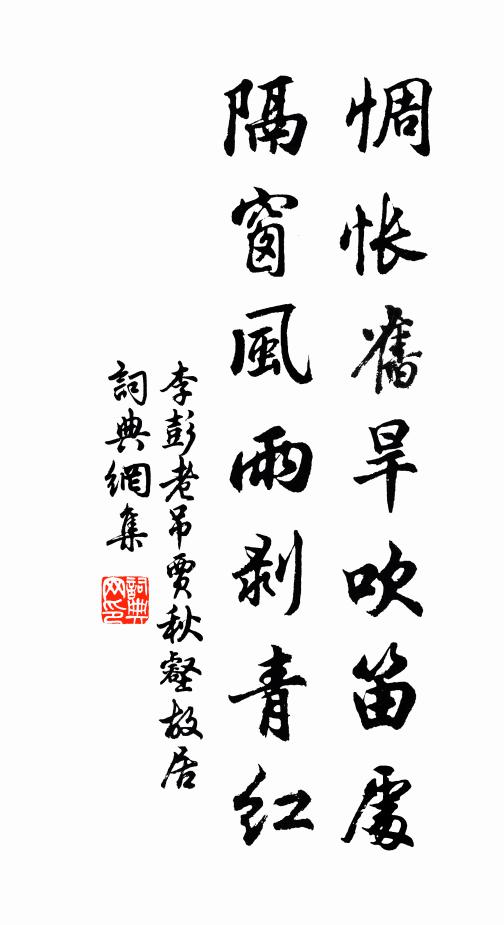 惆悵舊旱吹笛處
隔窗風雨剥青紅
李彭老吊賈秋壑故居
詞典網集
詞典
网印